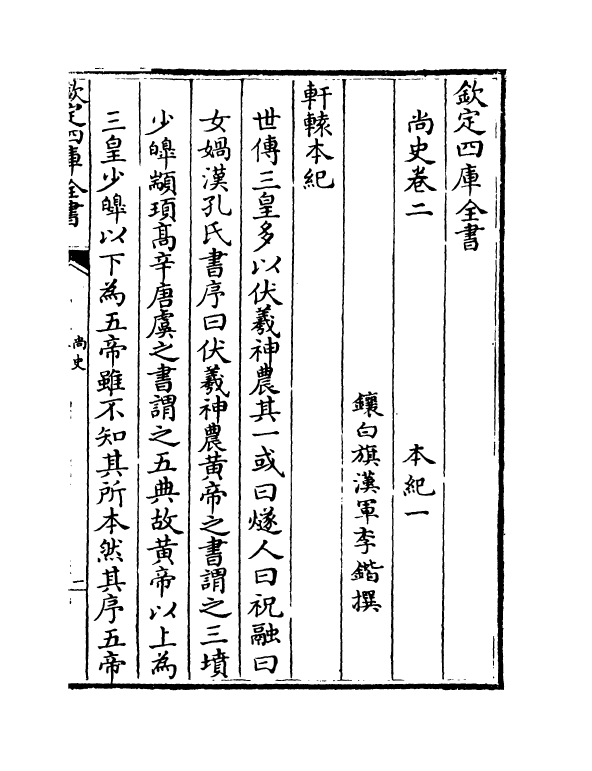 欽定四庫全書
尚史卷二　本紀一
鑲白旗漢軍李鍇撰
軒轅本紀
世傳三皇多以伏羲神農其一或曰燧人曰祝融曰
女媧漢孔氏書序曰伏羲神農黃帝之書謂之三墳
少皥顓頊髙辛唐虞之書謂之五典故黃帝以上為
三皇少皥以下為五帝雖不知其所本然其序五帝
欽定四庫全書
尚史
二